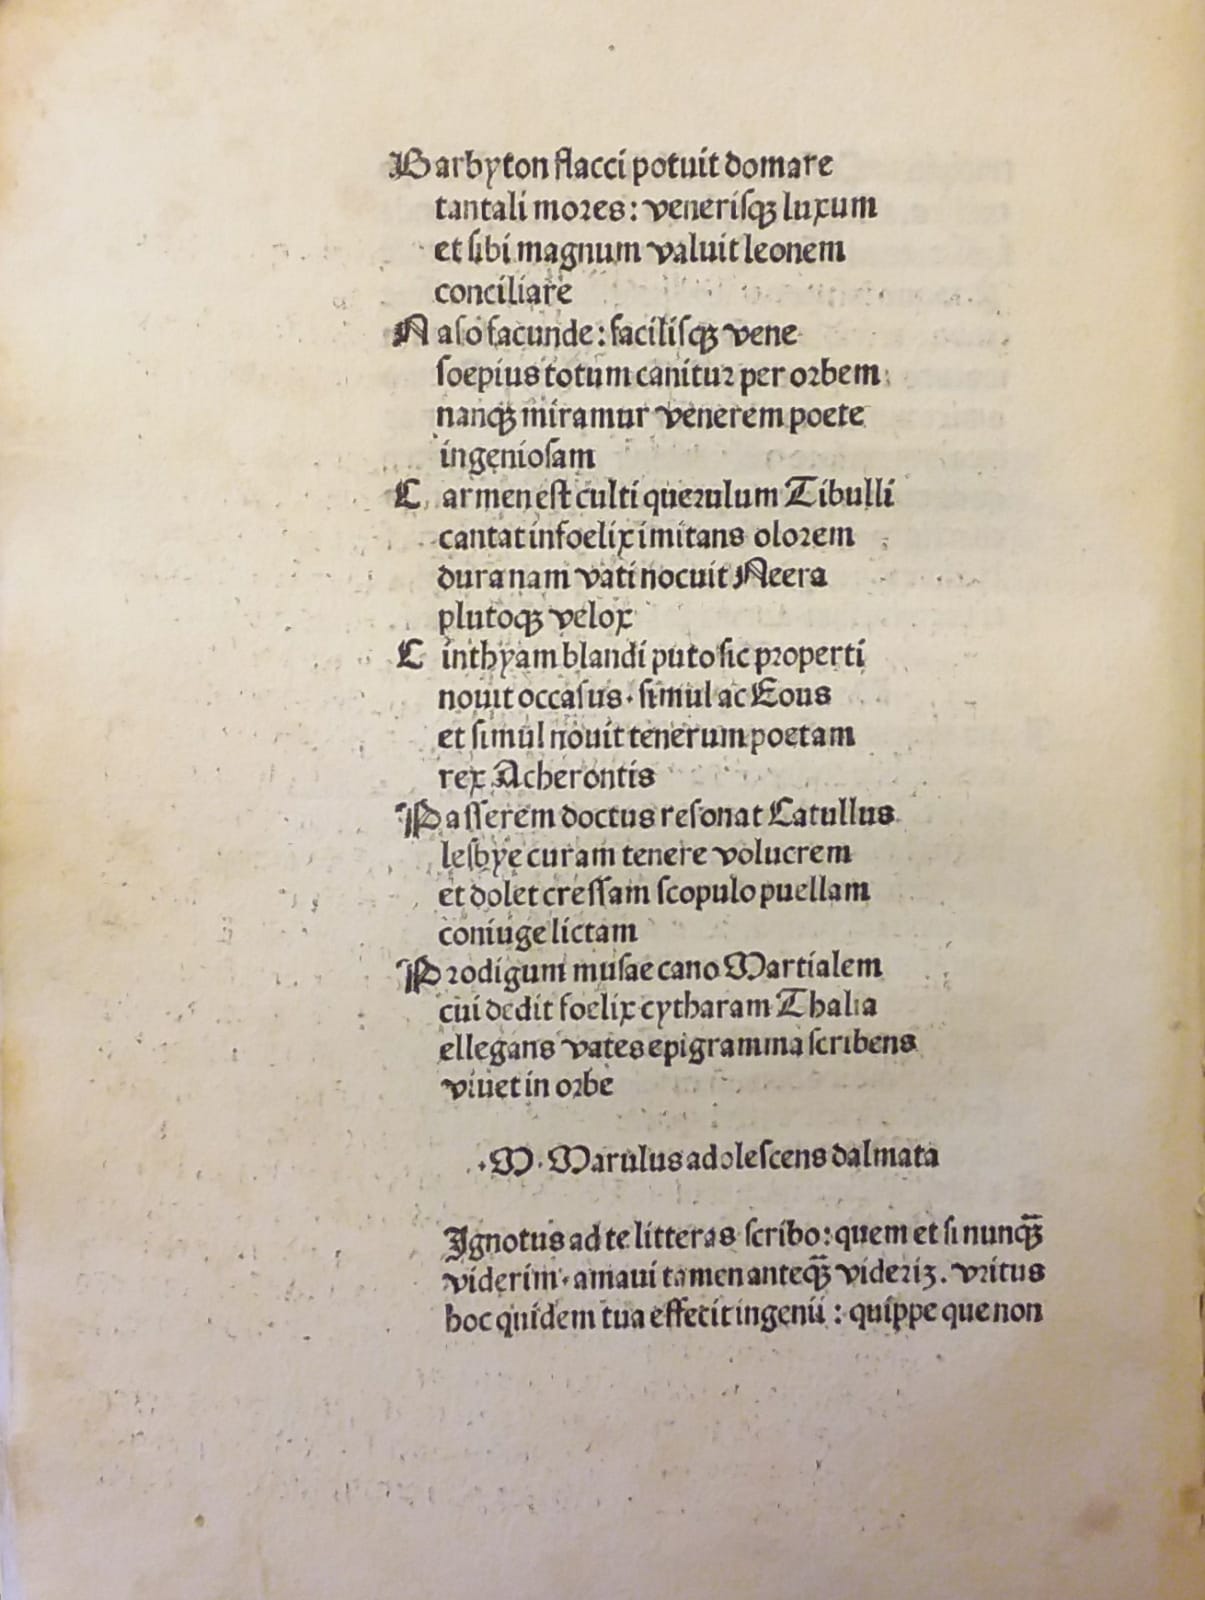 Barbyton flacci potuit domare
tantali mores: veneriſqꝫ luxum
et ſibi magnum valuit leonem
conciliare
Naſo facunde: faciliſqꝫ vene
ſoepius totum canitur per orbem
nanqꝫ miramur venerem poete
ingenioſam
Carmen eſt culti querulum Tibulli
cantat infoelix imitans olorem
dura nam vati nocuit Neera
plutoqꝫ velox
Cinthyam blandi puto ſic properti
nouit occaſus · ſimul ac Eous
et ſimul nouit tenerum poetam
rex Acherontis
Paſſerem doctus reſonat Catullus
leſbye curam tenere volucrem
et dolet creſſam ſcopulo puellam
coniuge lictam
Prodigum muſae cano Martialem
cui dedit foelix cytharam Thalia
ellegans vates epigramma ſcribens
viuet in orbe
· M · Marulus adoleſcens dalmata
Ignotus ad te litteras ſcribo: quem et ſi nunqꝫ̄
viderim · amaui tamen anteqꝫ̄ videriꝫ. vritus
hoc quidem tua effecit ingenii: quippe que non